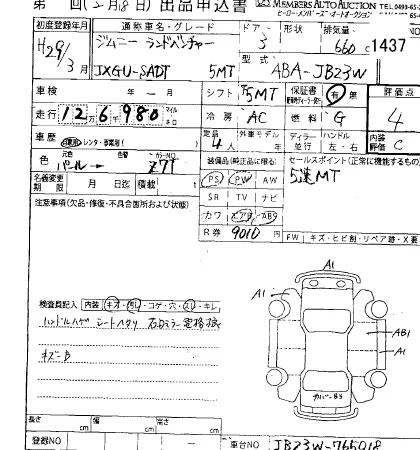 第 回(2月8日) 出品申込書 MEMBERS AUTO AUCTION TEL.0493-65-
ヒーロー・メンバーズ・オートオークション FAX.0493-65-
初度登録年月 通称車名・グレード ドアー 形状 排気量
H29/3月 ジムニー ランドベンチャー 3 660 c 1437
型式
JXGU-SADT 5MT ABA-JB23W
車検 年 — 月 シフト 5MT 保証書 有・無 評価点
走行 12万6千980 マイル キロ 冷房 AC 燃料 G 4
車歴 自家用・レンタ・事業用 定員 4人 外車モデル ディラー 並行 ハンドル 左・右 内装評価 C
色 元色 パール 色替 カラーNO. Z7T 装備品(純正品に限る) セールスポイント(正常に機能するもの)
名義変更期限 月 日迄 積載 PS PW AW 5速MT
注意事項(欠品・修復・不具合箇所および状態) SR TV ナビ
カワ エアB ABS
R券 9010円
FW キズ・ヒビ割・リペア跡・X要
A1
A1 A1
AB1
A1
検査員記入 内装(キオ・汚レ・コゲ・穴・スレ・キレ)
キズ一口
カバーB3
長さ cm 幅 cm 高さ cm
登録NO — 車台NO JB23W-765018